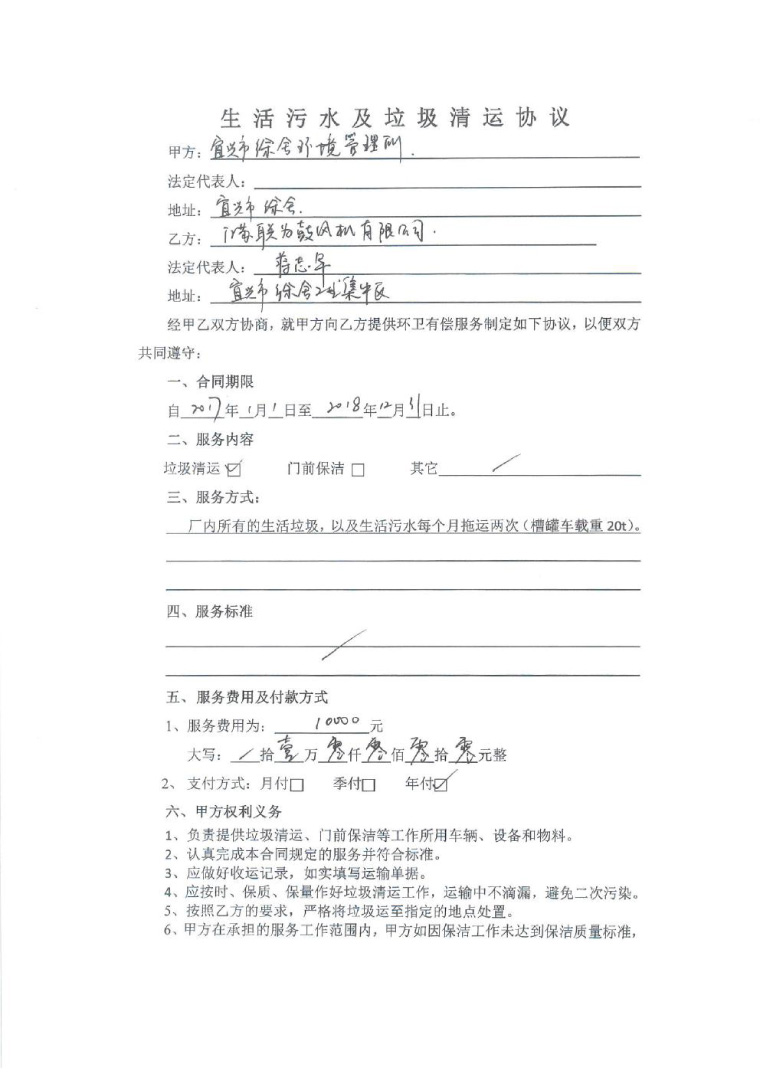 生活污水及垃圾清运协议
甲方：宜兴市徐舍环境管理所.
法定代表人：
地址：宜兴市徐舍.
乙方：江苏联为鼓风机有限公司.
法定代表人：蒋志军
地址：宜兴市徐舍工业集中区
经甲乙双方协商，就甲方向乙方提供环卫有偿服务制定如下协议，以便双方
共同遵守：
一、合同期限
自 2017年1月1日至 2018年12月31日止。
二、服务内容
垃圾清运☑ 门前保洁□ 其它 /
三、服务方式：
厂内所有的生活垃圾，以及生活污水每个月拖运两次（槽罐车载重20t）。
四、服务标准
/
五、服务费用及付款方式
1、服务费用为： 10000 元
大写： / 拾壹万零仟零佰零拾零元整
2、 支付方式：月付□ 季付□ 年付☑
六、甲方权利义务
1、负责提供垃圾清运、门前保洁等工作所用车辆、设备和物料。
2、认真完成本合同规定的服务并符合标准。
3、应做好收运记录，如实填写运输单据。
4、应按时、保质、保量作好垃圾清运工作，运输中不滴漏，避免二次污染。
5、按照乙方的要求，严格将垃圾运至指定的地点处置。
6、甲方在承担的服务工作范围内，甲方如因保洁工作未达到保洁质量标准，